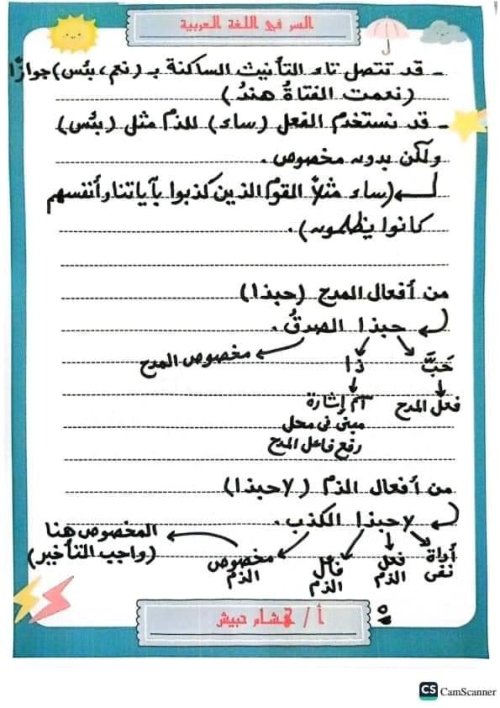 السر في اللغة العربية
- قد تتصل تاء التأنيث الساكنة بـ (نعم، بئس) جوازًا
(نعمت الفتاةُ هندُ)
- قد نستخدم الفعل (ساء) للذم مثل (بئس)
ولكن بدون مخصوص.
(ساء مثلاً القوم الذين كذبوا بآياتنا وأنفسهم
كانوا يظلمون).
من أفعال المدح (حبذا)
حبذا الصدقُ.
حَبَّ ذا مخصوص المدح
فعل المدح اسم إشارة
مبنى فى محل
رفع فاعل المدح
من أفعال الذم (لاحبذا)
لاحبذا الكذب.
أداة نفى فعل الذم فاعل الذم مخصوص الذم المخصوص هنا (واجب التأخير)
أ / هشام حبيش
CS CamScanner